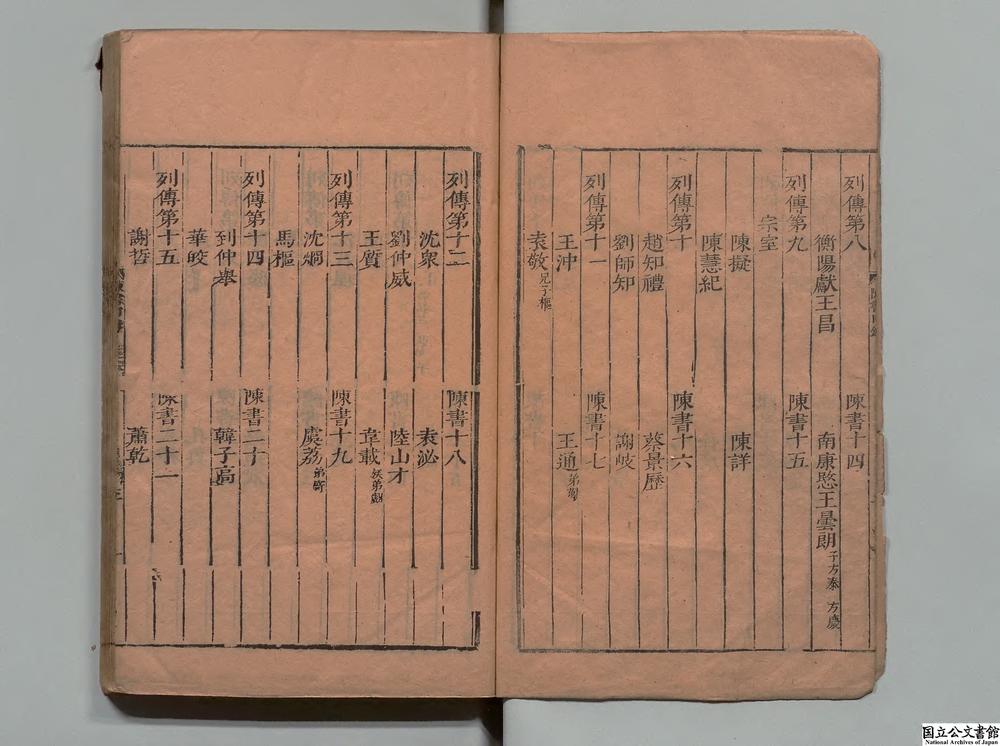 列傳第八 陳書十四
衡陽獻王昌 南康愍王曇朗 子方泰 方慶
列傳第九 陳書十五
宗室
陳擬 陳詳
陳慧紀
列傳第十 陳書十六
趙知禮 蔡景歷
劉師知 謝岐
列傳第十一 陳書十七
王沖 王通 弟勱
袁敬 兄子樞
列傳第十二 陳書十八
沈衆 袁泌
劉仲威 陸山才
王質 韋載 族弟翽
列傳第十三 陳書十九
沈烱 虞荔 弟寄
馬樞
列傳第十四 陳書二十
到仲舉 韓子高
華皎
列傳第十五 陳書二十一
謝哲 蕭乾
国立公文書館
National Archives of Japan